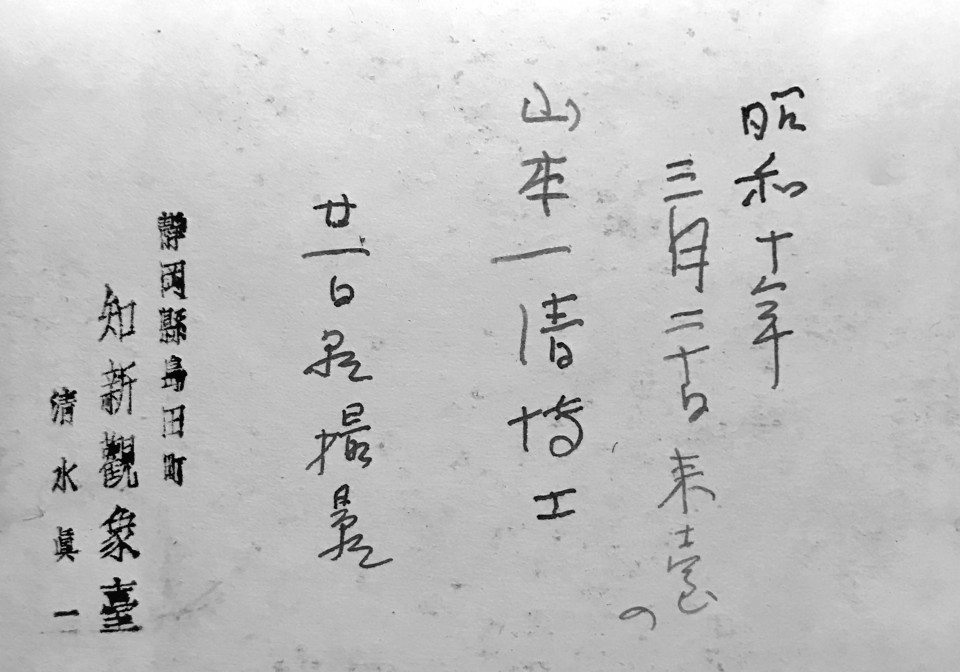 昭和十年
三月二十日来臺の
山本一清博士
廿一日撮影
靜岡縣島田町
知新觀象臺
清水眞一